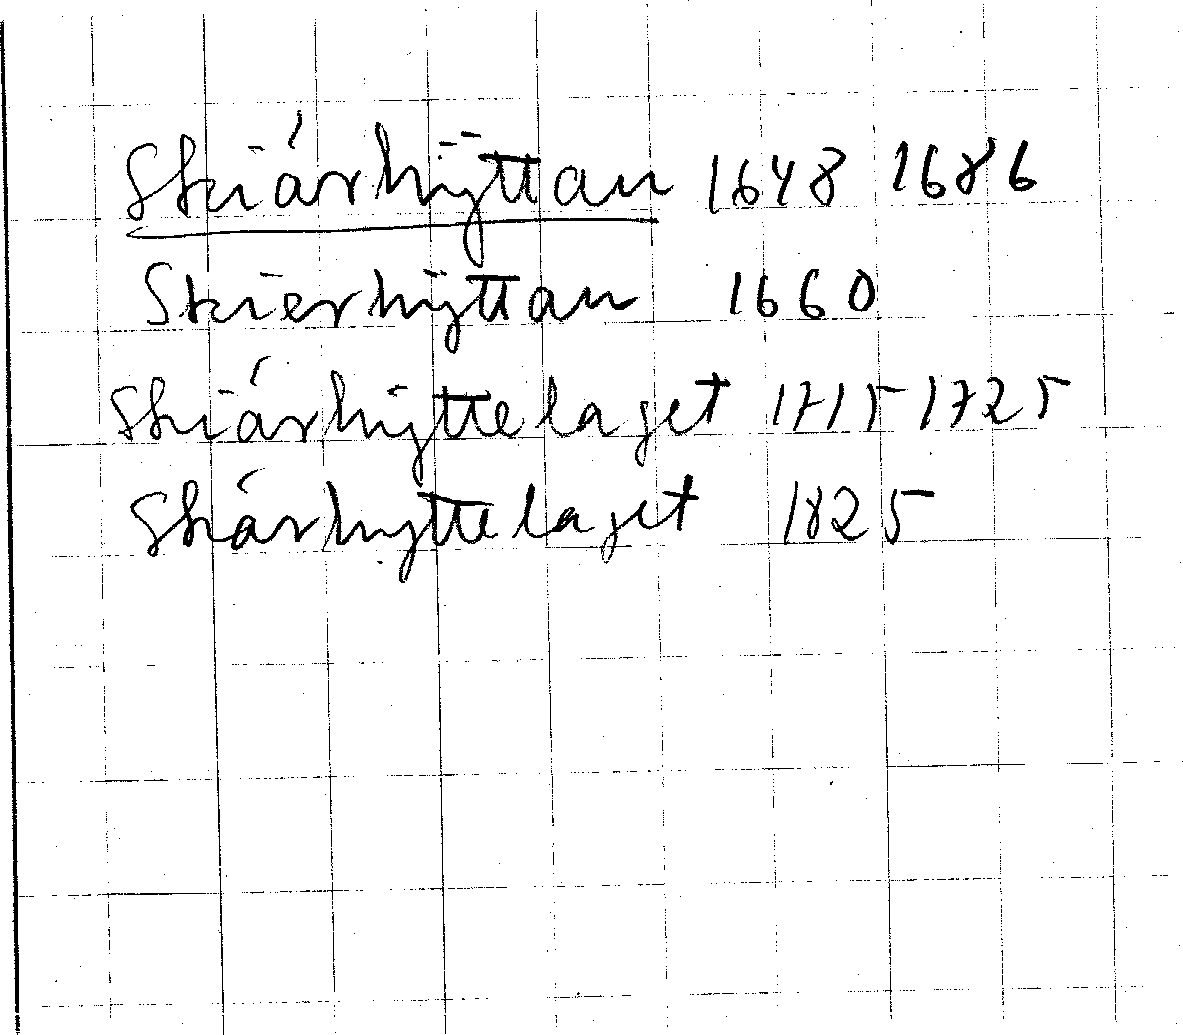 Skiárhÿttan 1648 1686
Skierhÿttan 1660
Skiárhÿttelaget 1715 1725
Skárhyttelaget 1825